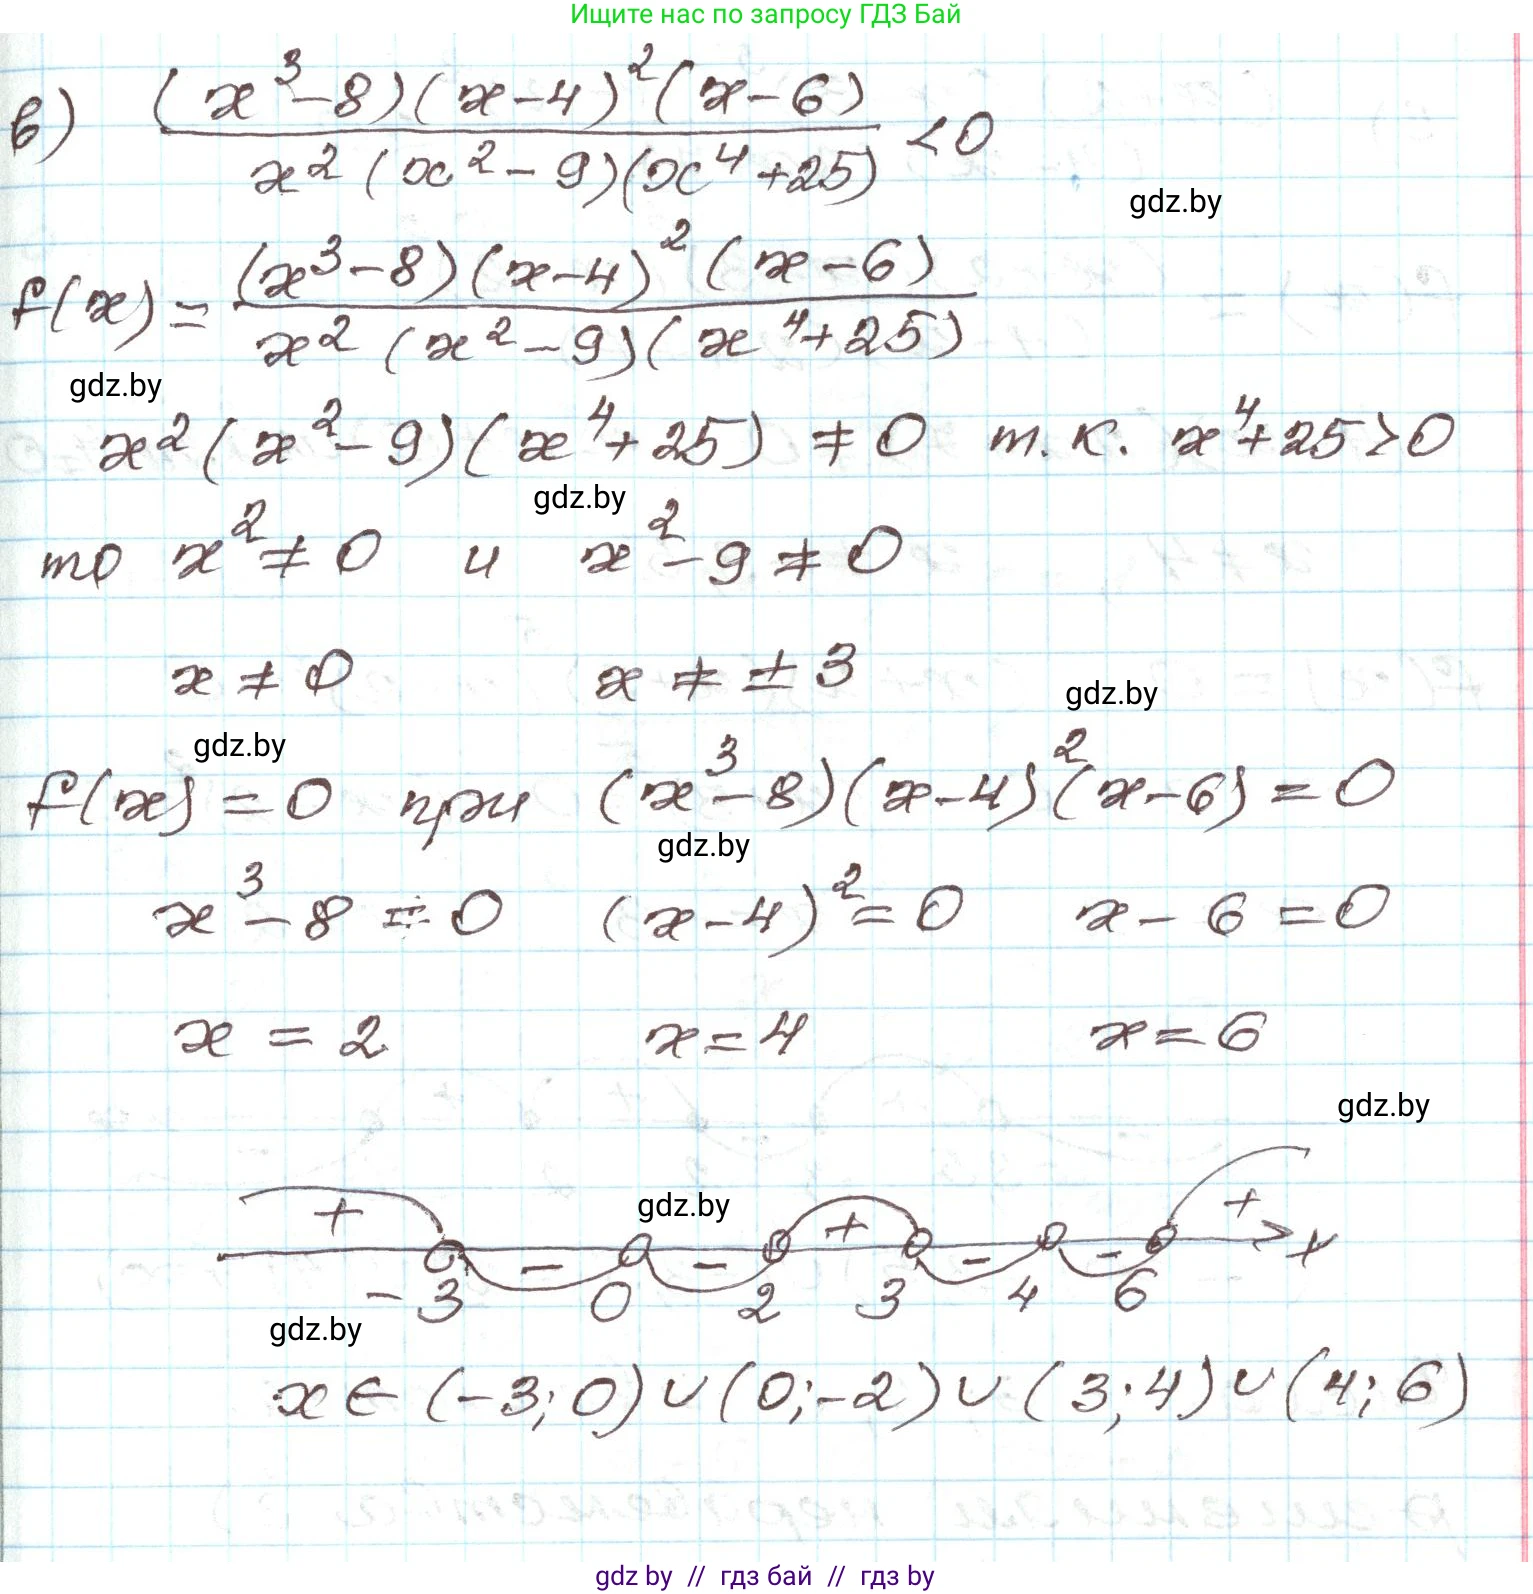 Ищите нас по запросу ГДЗ Бай
в) (x³-8)(x-4)²(x-6) / x²(x²-9)(x⁴+25) < 0
gdz.by
f(x) = (x³-8)(x-4)²(x-6) / x²(x²-9)(x⁴+25)
gdz.by
x²(x²-9)(x⁴+25) ≠ 0 т.к. x⁴+25>0
gdz.by
то x² ≠ 0 и x²-9 ≠ 0
x ≠ 0 x ≠ ±3
gdz.by
gdz.by
f(x) = 0 при (x³-8)(x-4)²(x-6) = 0
gdz.by
x³-8 = 0 (x-4)² = 0 x-6 = 0
x = 2 x = 4 x = 6
gdz.by
gdz.by
+ - - + - - + x
-3 0 2 3 4 6
gdz.by
x ∈ (-3; 0) ∪ (0; -2) ∪ (3; 4) ∪ (4; 6)
gdz by // гдз бай // гдз by